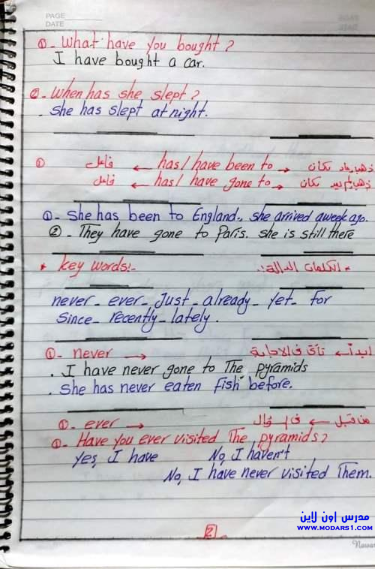 PAGE
DATE
①- What have you bought?
I have bought a car.
②- When has she slept?
- She has slept at night.
① فاعل ← has/have been to → ذهب وعاد مكان
فاعل ← has/have gone to → ذهب لم يعد مكان
①- She has been to England., she arrived a week ago.
②- They have gone to Paris. she is still there
* key words:- - الكلمات الدالة:
never - ever - Just - already - yet - for
since - recently - lately.
①- never → أبداً ← تأتي في الإجابة
. I have never gone to The pyramids
. She has never eaten fish before.
①- ever → من قبل ← في السؤال
①- Have you ever visited The pyramids?
Yes, I have No, I haven't
No, I have never visited Them.
2
مدرس اون لاين
WWW.MODARS1.COM